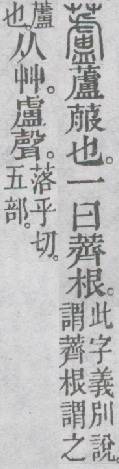 蘆蘆菔也。一曰薺根。此字義別說。謂薺根謂之
蘆也。从艸。盧聲。落乎切。五部。